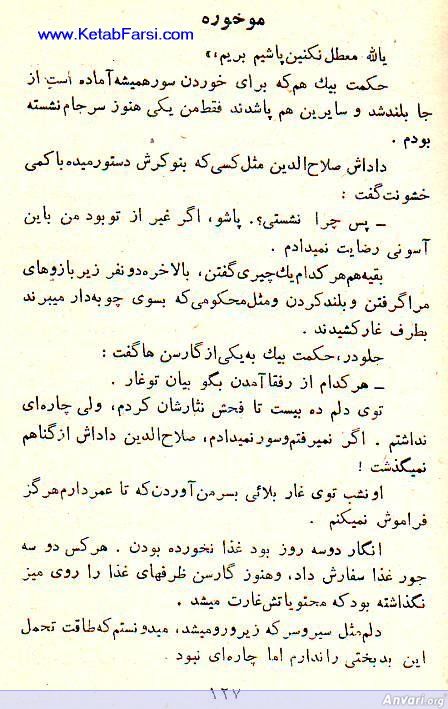 موخوره
www.KetabFarsi.com
یاالله معطل نکنین پاشیم بریم»
حکمت بیك هم که برای خوردن سورهمیشه آماده است از
جا بلندشد و سایرین هم پاشدند فقط من یکی هنوز سرجام نشسته
بودم .
داداش صلاح‌الدین مثل کسی که بنوکرش دستورمیده باکمی
خشونت گفت :
ـ پس چرا نشستی؟. پاشو، اگر غیر از توبود من باین
آسونی رضایت نمیدادم .
بقیه هم هر کدام یك چیری گفتن، بالاخره دونفر زیر بازوهای
مراگرفتن و بلند کردن ومثل محکومی که بسوی چوبه‌دار میبرند
بطرف غار کشیدند .
جلودر، حکمت بیك به یکی از گارسن ها گفت :
ـ هرکدام از رفقا آمدن بگو بیان توغار .
توی دلم ده بیست تا فحش نثارشان کردم، ولی چاره‌ای
نداشتم . اگر نمیرفتم وسور نمیدادم، صلاح‌الدین داداش از گناهم
نمیگذشت !
اونشب توی غار بلائی بسرمن آوردن که تا عمر دارم هرگز
فراموش نمیکنم .
انگار دوسه روز بود غذا نخورده بودن . هرکس دو سه
جور غذا سفارش داد، وهنوز گارسن ظرفهای غذا را روی میز
نگذاشته بود که محتویاتش غارت میشد .
دلم مثل سیر وسرکه زیر ورو میشد، میدونستم که طاقت تحمل
این بدبختی را ندارم اما چاره‌ای نبود .
۱۲۷
Anvari.org